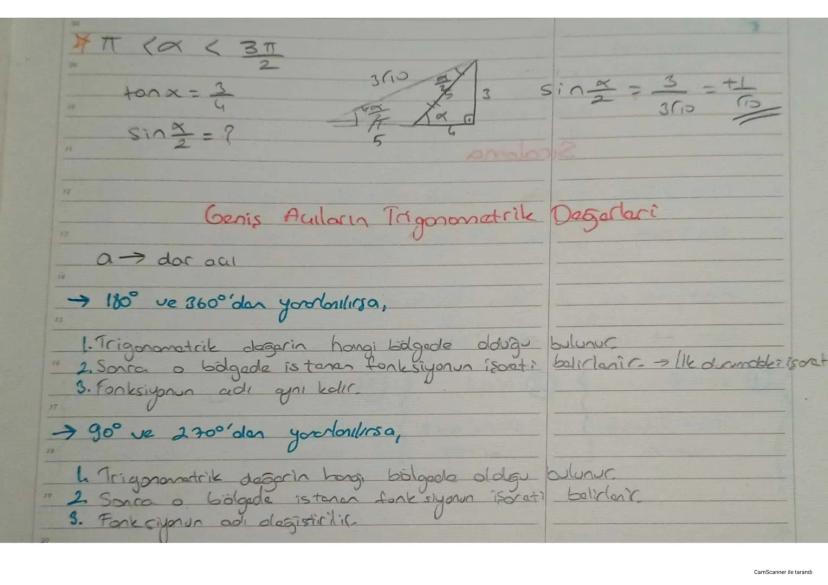 π < α < 3π/2
tan x = 3/4
sin x/2 = ?
3√10
α/2
5
3
α
4
5
sin α/2 = 3/3√10 = +1/√10
Geniş Açıların Trigonometrik Değerleri
a → dar açı
→ 180° ve 360°'dan yararlanılırsa,
1. Trigonometrik değerin hangi bölgede olduğu bulunur.
2. Sonra o bölgede istenen fonksiyonun işareti belirlenir. → İlk durumdaki işaret
3. Fonksiyonun adı aynı kalır.
→ 90° ve 270°'dan yararlanılırsa,
1. Trigonometrik değerin hangi bölgede olduğu bulunur.
2. Sonra o bölgede istenen fonksiyonun işareti belirlenir.
3. Fonksiyonun adı değiştirilir.
CamScanner ile tarandı